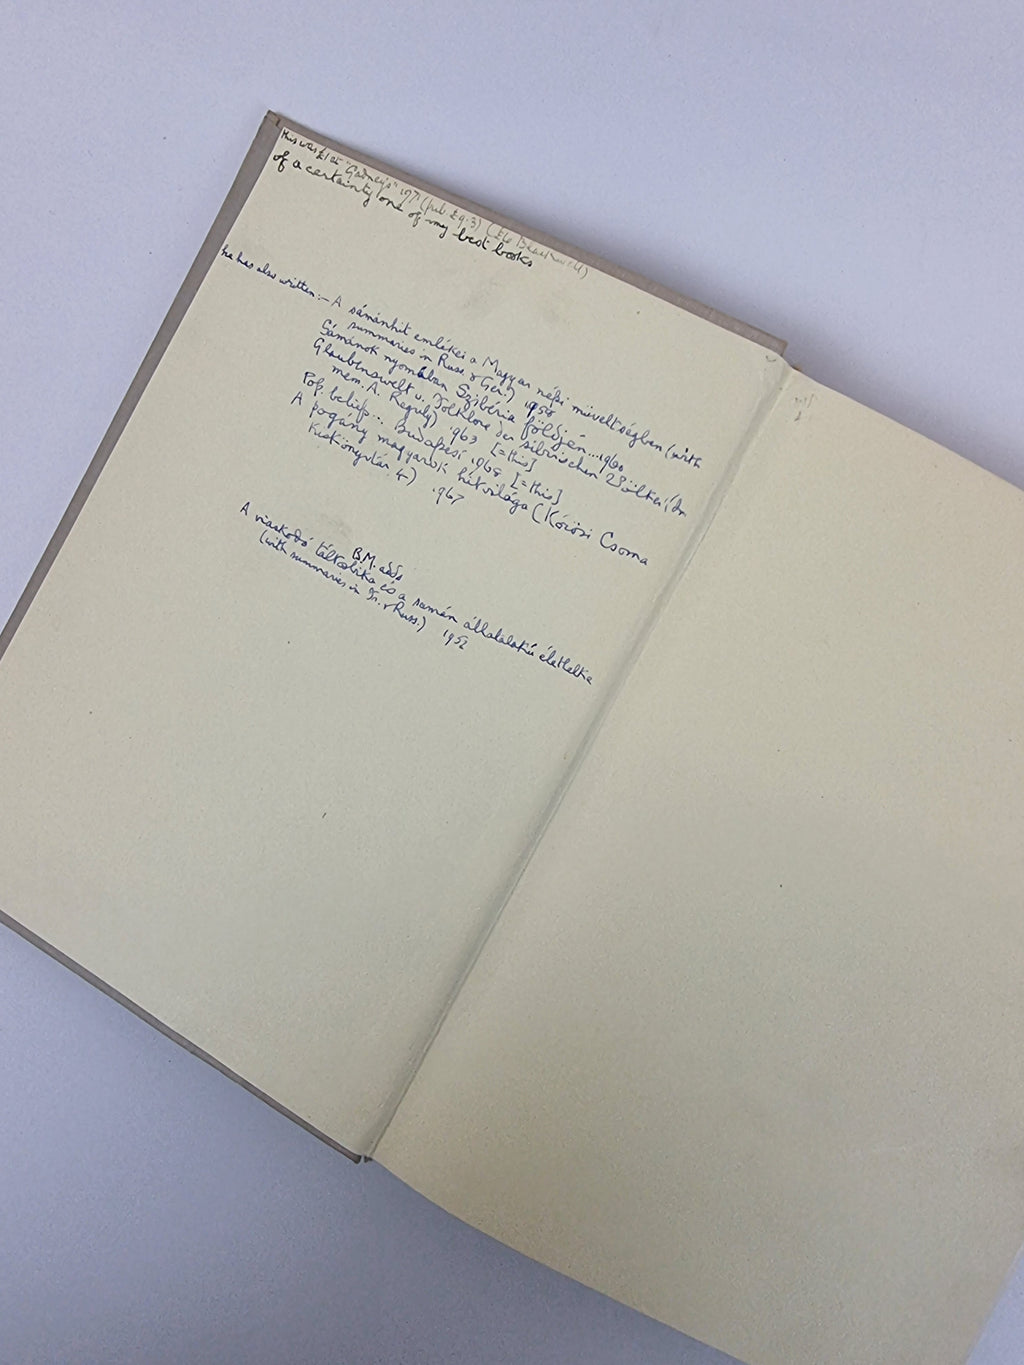 this was £1 at "Gadney's" 1971 (pub. £9.3) (£6 Blackwell)
of a certainty one of my best books
he has also written:- A sámánhit emlékei a Magyar népi műveltségben (with
summaries in Russ. & Ger.) 1958
Sámánok nyomában Szibéria földjén... 1960
Glaubenswelt u. Folklore der sibirischen Völker (In
mem. A. Reguly) 1963 [=this]
Pop. beliefs.. Budapest 1968 [=this]
A pogány magyarok hitvilága (Kőrösi Csoma
Kiskönyvtár 4) 1967
B.M. adds
A viaskodó táltosbika és a samán állatalakú életlelke
(with summaries in Fr. & Russ.) 1952